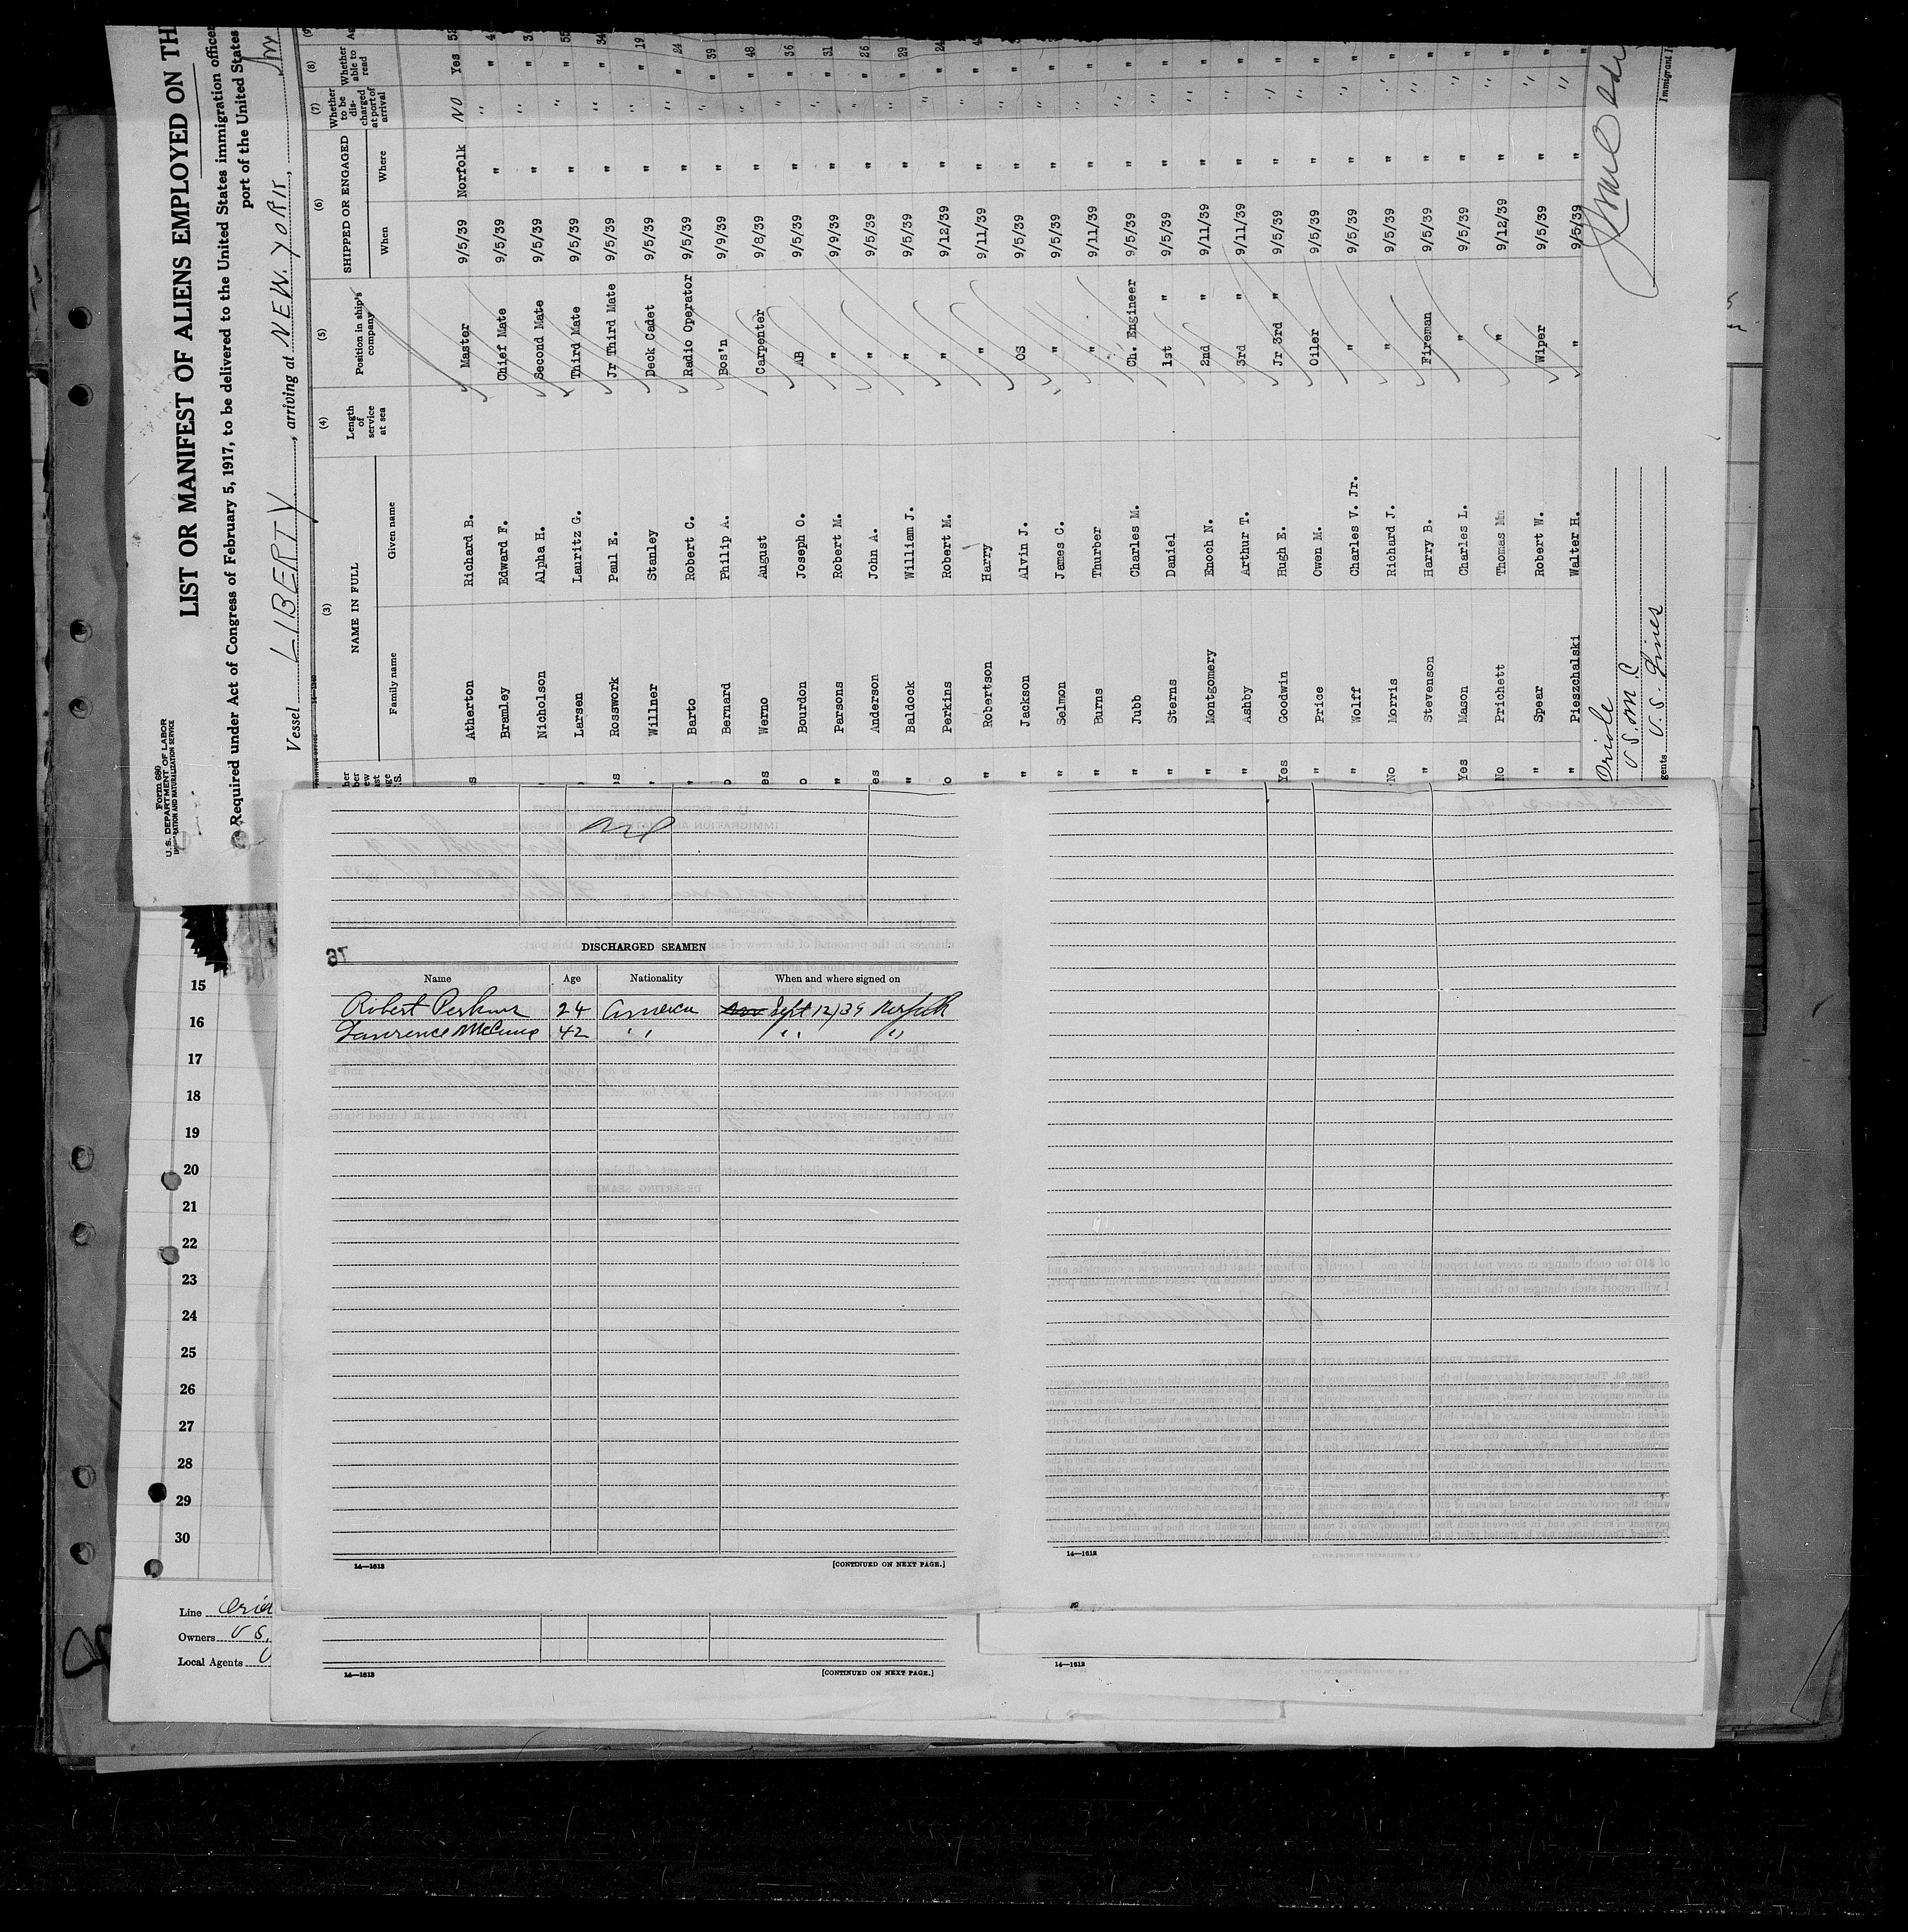 Form 680
U.S. DEPARTMENT OF LABOR
IMMIGRATION AND NATURALIZATION SERVICE
LIST OR MANIFEST OF ALIENS EMPLOYED ON TH
Required under Act of Congress of February 5, 1917, to be delivered to the United States immigration officer
port of the United States
Vessel LIBERTY, arriving at NEW YORK,
(3) (4) (5) (6) (7) (8)
NAME IN FULL Length of service at sea Position in ship's company SHIPPED OR ENGAGED Whether to be discharged at port of arrival Whether able to read
Family name Given name When Where
Atherton Richard B. Master 9/5/39 Norfolk NO Yes 52
Bramley Edward F. Chief Mate 9/5/39 " " "
Nicholson Alpha H. Second Mate 9/5/39 " " "
Larsen Lauritz G. Third Mate 9/5/39 " " " 55
Rosswork Paul E. Jr Third Mate 9/5/39 " " " 34
Willner Stanley Deck Cadet 9/5/39 " " " 19
Barto Robert C. Radio Operator 9/5/39 " " " 24
Bernard Philip A. Bos'n 9/9/39 " " " 39
Werno August Carpenter 9/8/39 " " " 48
Bourdon Joseph O. AB 9/5/39 " " " 36
Parsons Robert M. " 9/9/39 " " " 31
Anderson John A. " 9/5/39 " " " 26
Baldock William J. " 9/5/39 " " " 29
Perkins Robert M. " 9/12/39 " " " 24
Robertson Harry " 9/11/39 " " "
Jackson Alvin J. OS 9/5/39 " " "
Selmon James C. " 9/5/39 " " "
Burns Thurber " 9/11/39 " " "
Jubb Charles M. Ch. Engineer 9/5/39 " " "
Sterns Daniel 1st " 9/5/39 " " "
Montgomery Enoch N. 2nd " 9/11/39 " " "
Ashby Arthur T. 3rd " 9/11/39 " " "
Yes Goodwin Hugh E. Jr 3rd " 9/5/39 " " "
" Price Owen M. Oiler 9/5/39 " " "
" Wolff Charles V. Jr. " 9/5/39 " " "
No Morris Richard J. " 9/5/39 " " "
" Stevenson Harry B. Fireman 9/5/39 " " "
Yes Mason Charles L. " 9/5/39 " " "
No Prichett Thomas " 9/12/39 " " "
" Spear Robert W. Wiper 9/5/39 " " "
" Pieszchalski Walter H. " 9/5/39 " " "
Oriole
U S M C
gents U.S. Lines
Immigrant I
DISCHARGED SEAMEN
Name Age Nationality When and where signed on
Robert Perkins 24 America Sept 12/39 Norfolk
Lawrence McCune 42 " " " " " "
14—1613 [CONTINUED ON NEXT PAGE.]
14—1613
15
16
17
18
19
20
21
22
23
24
25
26
27
28
29
30
Line Orio
Owners U S.
Local Agents U
14—1613 [CONTINUED ON NEXT PAGE.]
14—1613